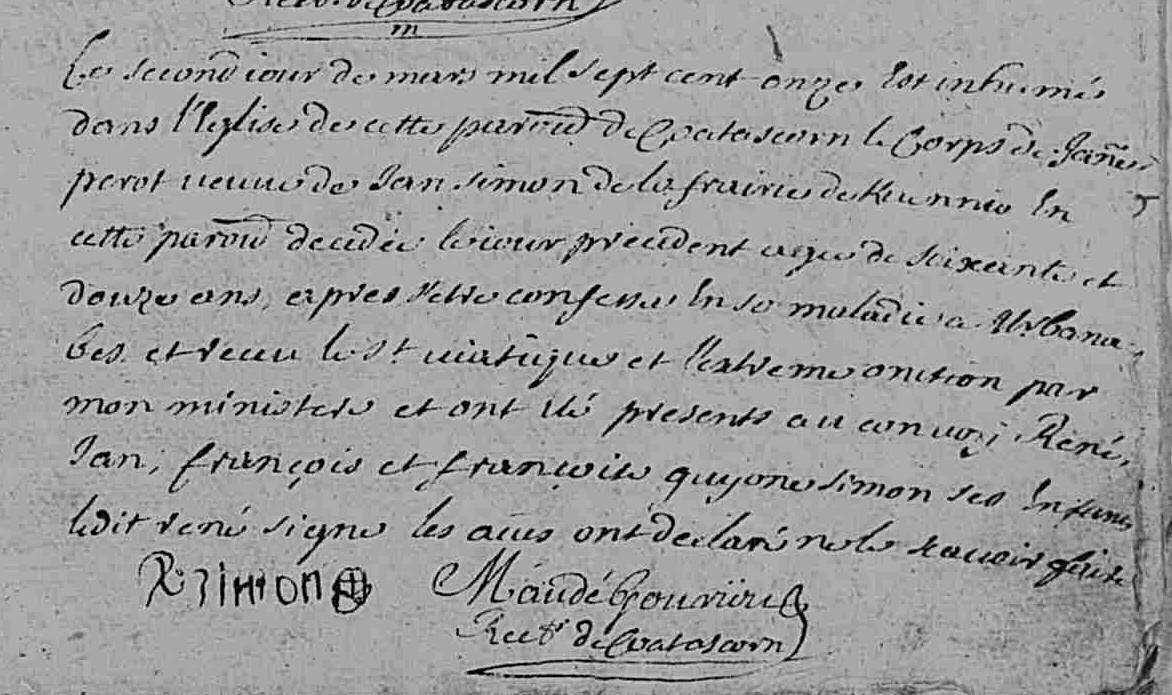 Rect.r de Coatascorn
Le second iour de mars mil sept cent onze Est inhumée
dans l'Eglise de cette paroisse de Coatascorn le Corps de Janne
perot veuve de Jan simon de la frairie de En
cette paroisse decedée le iour precedent agee de soixante et
douze ans, apres s'etre confessee En sa maladie a
et receu le st viatique et l'extreme onction par
mon ministere et ont été presents au convoy René,
Jan, françois et françoise guyone simon ses Enfans
ledit rené signe les autres ont declaré ne le scavoir
R simon Maudé
Rect.r de Coatascorn